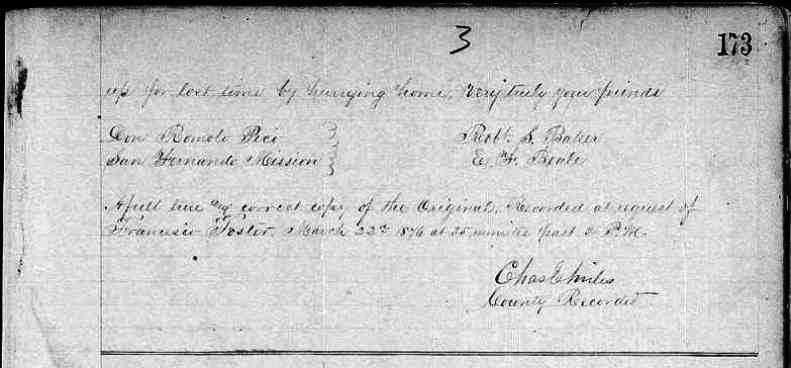 3
173
up for lost time by hurrying home, Very truly your friends
Don Romolo Pico } Robt. S. Baker
San Fernando Mission } E. F. Beale
A full true and correct copy of the Original, Recorded at request of
Francisco March 22d 1876 at 25 minutes past P.M.
Chas E Miles
County Recorder